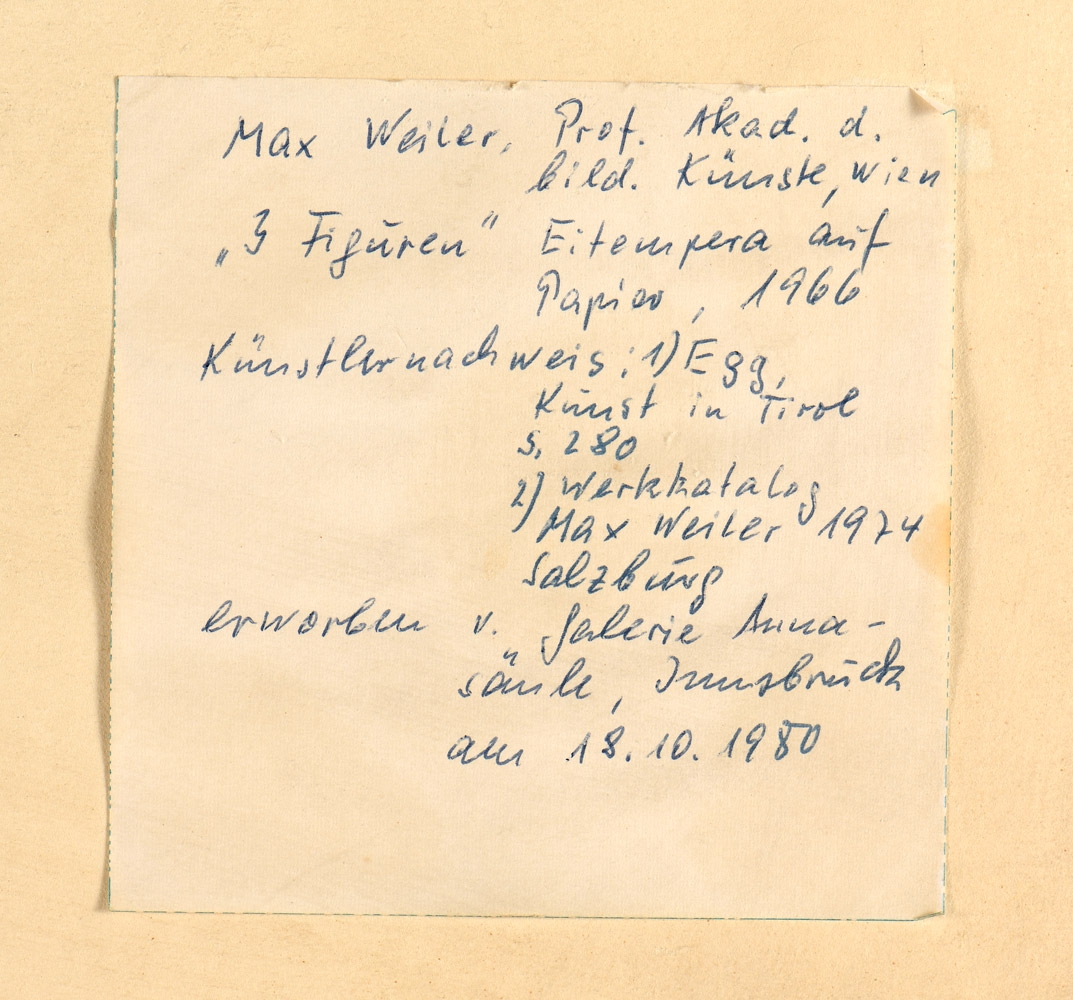 Max Weiler, Prof. Akad. d.
bild. Künste, Wien
„3 Figuren" Eitempera auf
Papier, 1966
Künstlernachweis: 1) Egg,
Kunst in Tirol
S. 280
2) Werkkatalog
Max Weiler 1974
Salzburg
erworben v. Galerie Anna-
säule, Innsbruck
am 18.10.1980